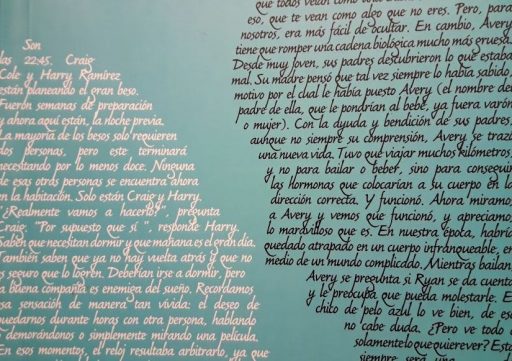 Son
las 22:45. Craig
Cole y Harry Ramírez
están planeando el gran beso.
Fueron semanas de preparación
y ahora aquí están, la noche previa.
La mayoría de los besos solo requieren
dos personas, pero este terminará
necesitando por lo menos doce. Ninguna
de esas otras personas se encuentra ahora
en la habitación. Solo están Craig y Harry.
"¿Realmente vamos a hacerlo?", pregunta
Craig. "Por supuesto que sí", responde Harry.
Saben que necesitan dormir y que mañana es el gran día.
También saben que ya no hay vuelta atrás y que no
es seguro que lo logren. Deberían irse a dormir, pero
la buena compañía es enemiga del sueño. Recordamos
esa sensación de manera tan vívida: el deseo de
quedarnos durante horas con otra persona, hablando
o demorándonos o simplemente mirando una película.
En esos momentos, el reloj resultaba arbitrario, ya que
que todos veían como
eso, que te vean como algo que no eres. Pero, para
nosotros, era más fácil de ocultar. En cambio, Avery
tiene que romper una cadena biológica mucho más gruesa.
Desde muy joven, sus padres descubrieron lo que estaba
mal. Su madre pensó que tal vez siempre lo había sabido,
motivo por el cual le había puesto Avery (el nombre del
padre de ella, que le pondrían al bebé, ya fuera varón
o mujer). Con la ayuda y bendición de sus padres,
aunque no siempre su comprensión, Avery se trazó
una nueva vida. Tuvo que viajar muchos kilómetros,
y no para bailar o beber, sino para conseguir
las hormonas que colocarían a su cuerpo en la
dirección correcta. Y funcionó. Ahora miramos
a Avery y vemos que funcionó, y apreciamos
lo maravilloso que es. En nuestra época, habría
quedado atrapado en un cuerpo infranqueable, en
medio de un mundo complicado. Mientras bailan,
Avery se pregunta si Ryan se da cuenta
y le preocupa que pueda molestarle. El
chico de pelo azul lo ve bien, de eso
no cabe duda. ¿Pero ve todo o
solamente lo que quiere ver? Esta
siempre será una